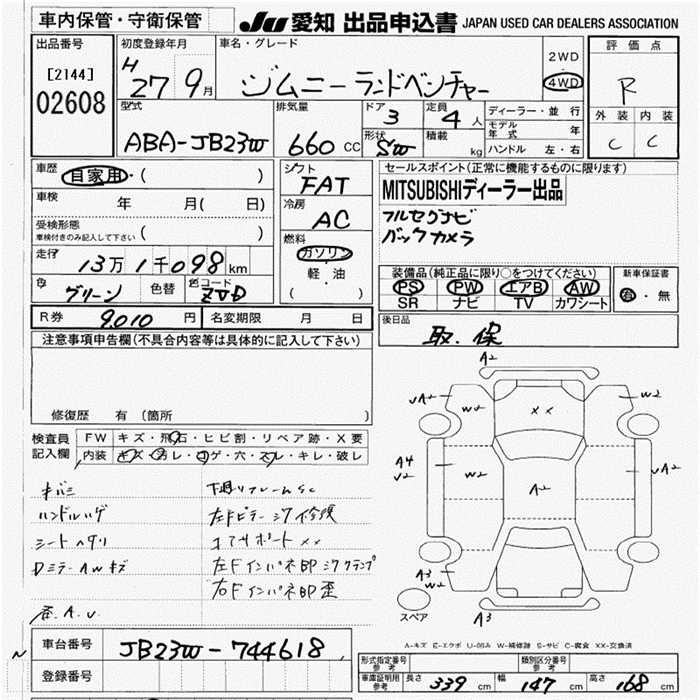 車内保管・守衛保管
JU 愛知 出品申込書 JAPAN USED CAR DEALERS ASSOCIATION
出品番号 初度登録年月 車名・グレード 2WD 評価点
[2144] H 27 9月 ジムニーランドベンチャー 4WD R
02608 型式 排気量 ドア 3 定員 4人 ディーラー・並行 外装 内装
モデル年式 年
ABA-JB23W 660 CC 形状 SW 積載 kg ハンドル 左・右 C C
車歴 自家用・( ) シフト FAT セールスポイント(正常に機能するものに限ります)
車検 年 月( 日) 冷房 AC MITSUBISHIディーラー出品
受検形態 ( ) フルセグナビ
車検付きのみ記入して下さい 燃料 バックカメラ
走行 13万1千098km ガソリン
軽・油 装備品(純正品に限り○をつけてください) 新車保証書
色 グリーン 色替 色コード ZVD ( ) PS PW エアB AW 有・無
SR ナビ TV カワシート
R券 9010円 名変期限 月 日 後日品
取.保
注意事項申告欄(不具合内容等は具体的に記入して下さい)
修復歴 有(箇所 )
検査員 FW キズ・飛石・ヒビ割・リペア跡・X要
記入欄 内装 キズ・汚レ・コゲ・穴・スレ・キレ・破レ
キバミ 下廻リフレームSC
ハンドルハゲ 左Fピラーシワ修換
シートヘタリ コアサポートXX
DミラーAWキズ 左FインパネBPシワクランプ
右FインパネBP歪
A.U.
A2
UA2 W2 W2
XX
A4 W2 W2 UA2
V2
A2
A3
W2
A3
スペア
A-キズ E-エクボ U-凹み W-補修跡 S-サビ C-腐食 XX-交換済
車台番号 JB23W-744618
登録番号
形式指定番号 参考 類別区分番号 参考
車庫証明用 参考 長さ 339cm 幅 147cm 高さ 168cm